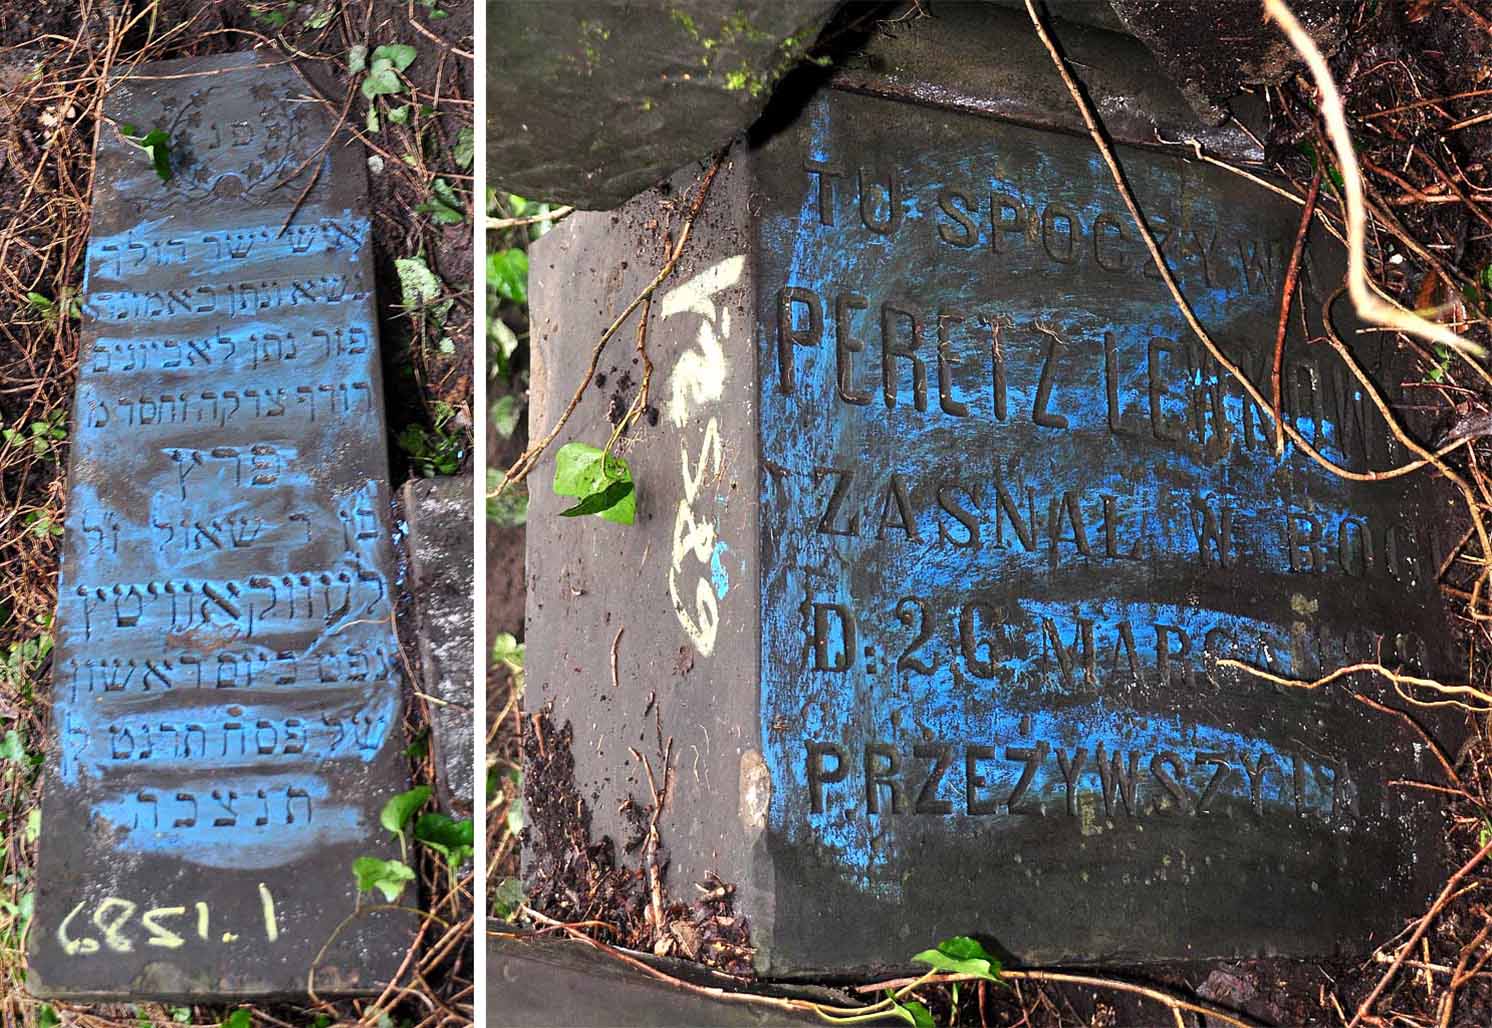 פ נ
איש ישר הולך
נשא ונתן באמונה
פזר נתן לאביונים
רודף צדקה וחסד
פרץ
בן ר שאול ז"ל
לעווקאוויטץ
נפט ביום ראשון
של פסח תרנט ל
תנצבה
TU SPOCZYW
PERETZ LEWKOW
ZASNAŁ W BOG
D: 26 MARCA
PRZEŻYWSZY